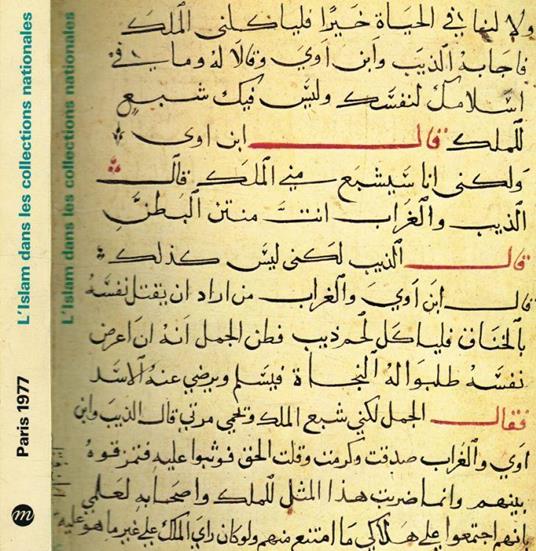 L'Islam dans les collections nationales
Paris 1977
m
L'Islam dans les collections nationales
ولا لنا في الحياة خيرًا فلياكلني الملك
فاجابه الذيب وابن آوي وقالا له وما في
اسلامك لنفسك وليس فيك شبع
للملك قال ابن اوي
ولكني انا سيشبع مني الملك قال
الذيب والغراب انت منتن البطن
قال الذيب لكني ليس كذلك
قال ابن آوي والغراب من اراد ان يقتل نفسه
بالخناق فلياكل لحم ذيب فظن الجمل انه ان اعرض
نفسه طلبوا له النجاة فيسلم ويرضي عنه الاسد
فقال الجمل لكني شبع الملك ولحمي مرتي قال الذيب وابن
اوي والغراب صدقت وكرمت وقلت الحق فوثبوا عليه فمزقوه
بينهم وانما ضربت هذا المثل للملك واصحابه لعلمي
بانهم اجتمعوا علي هلاكي ما امتنع منهم ولو كان راي الملك علي غير ما هو عليه